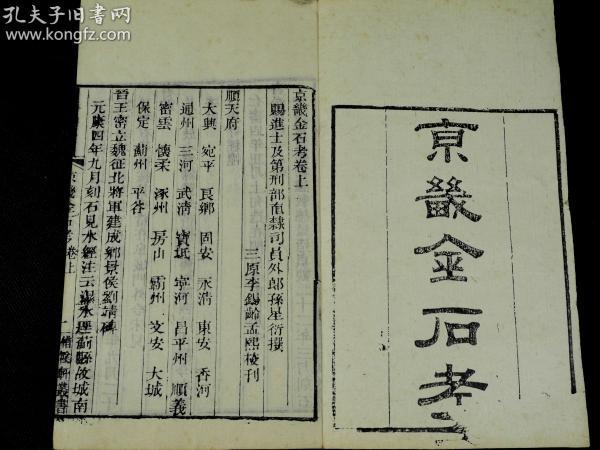 孔夫子旧书网
www.kongfz.com
京畿金石考
京畿金石考卷上
賜進士及第刑部直隸司員外郎孫星衍撰
三原李錫齡孟熙校刊
順天府
大興 宛平 良鄉 固安 永清 東安 香河
通州 三河 武清 寶坻 寧河 昌平州 順義
密雲 懷柔 涿州 房山 霸州 文安 大城
保定 薊州 平谷
晉王密立魏征北將軍建成鄉景侯劉靖碑
元康四年九月刻石見水經注云㶟水逕薊縣故城南
京畿金石考卷上
一
惜陰軒叢書